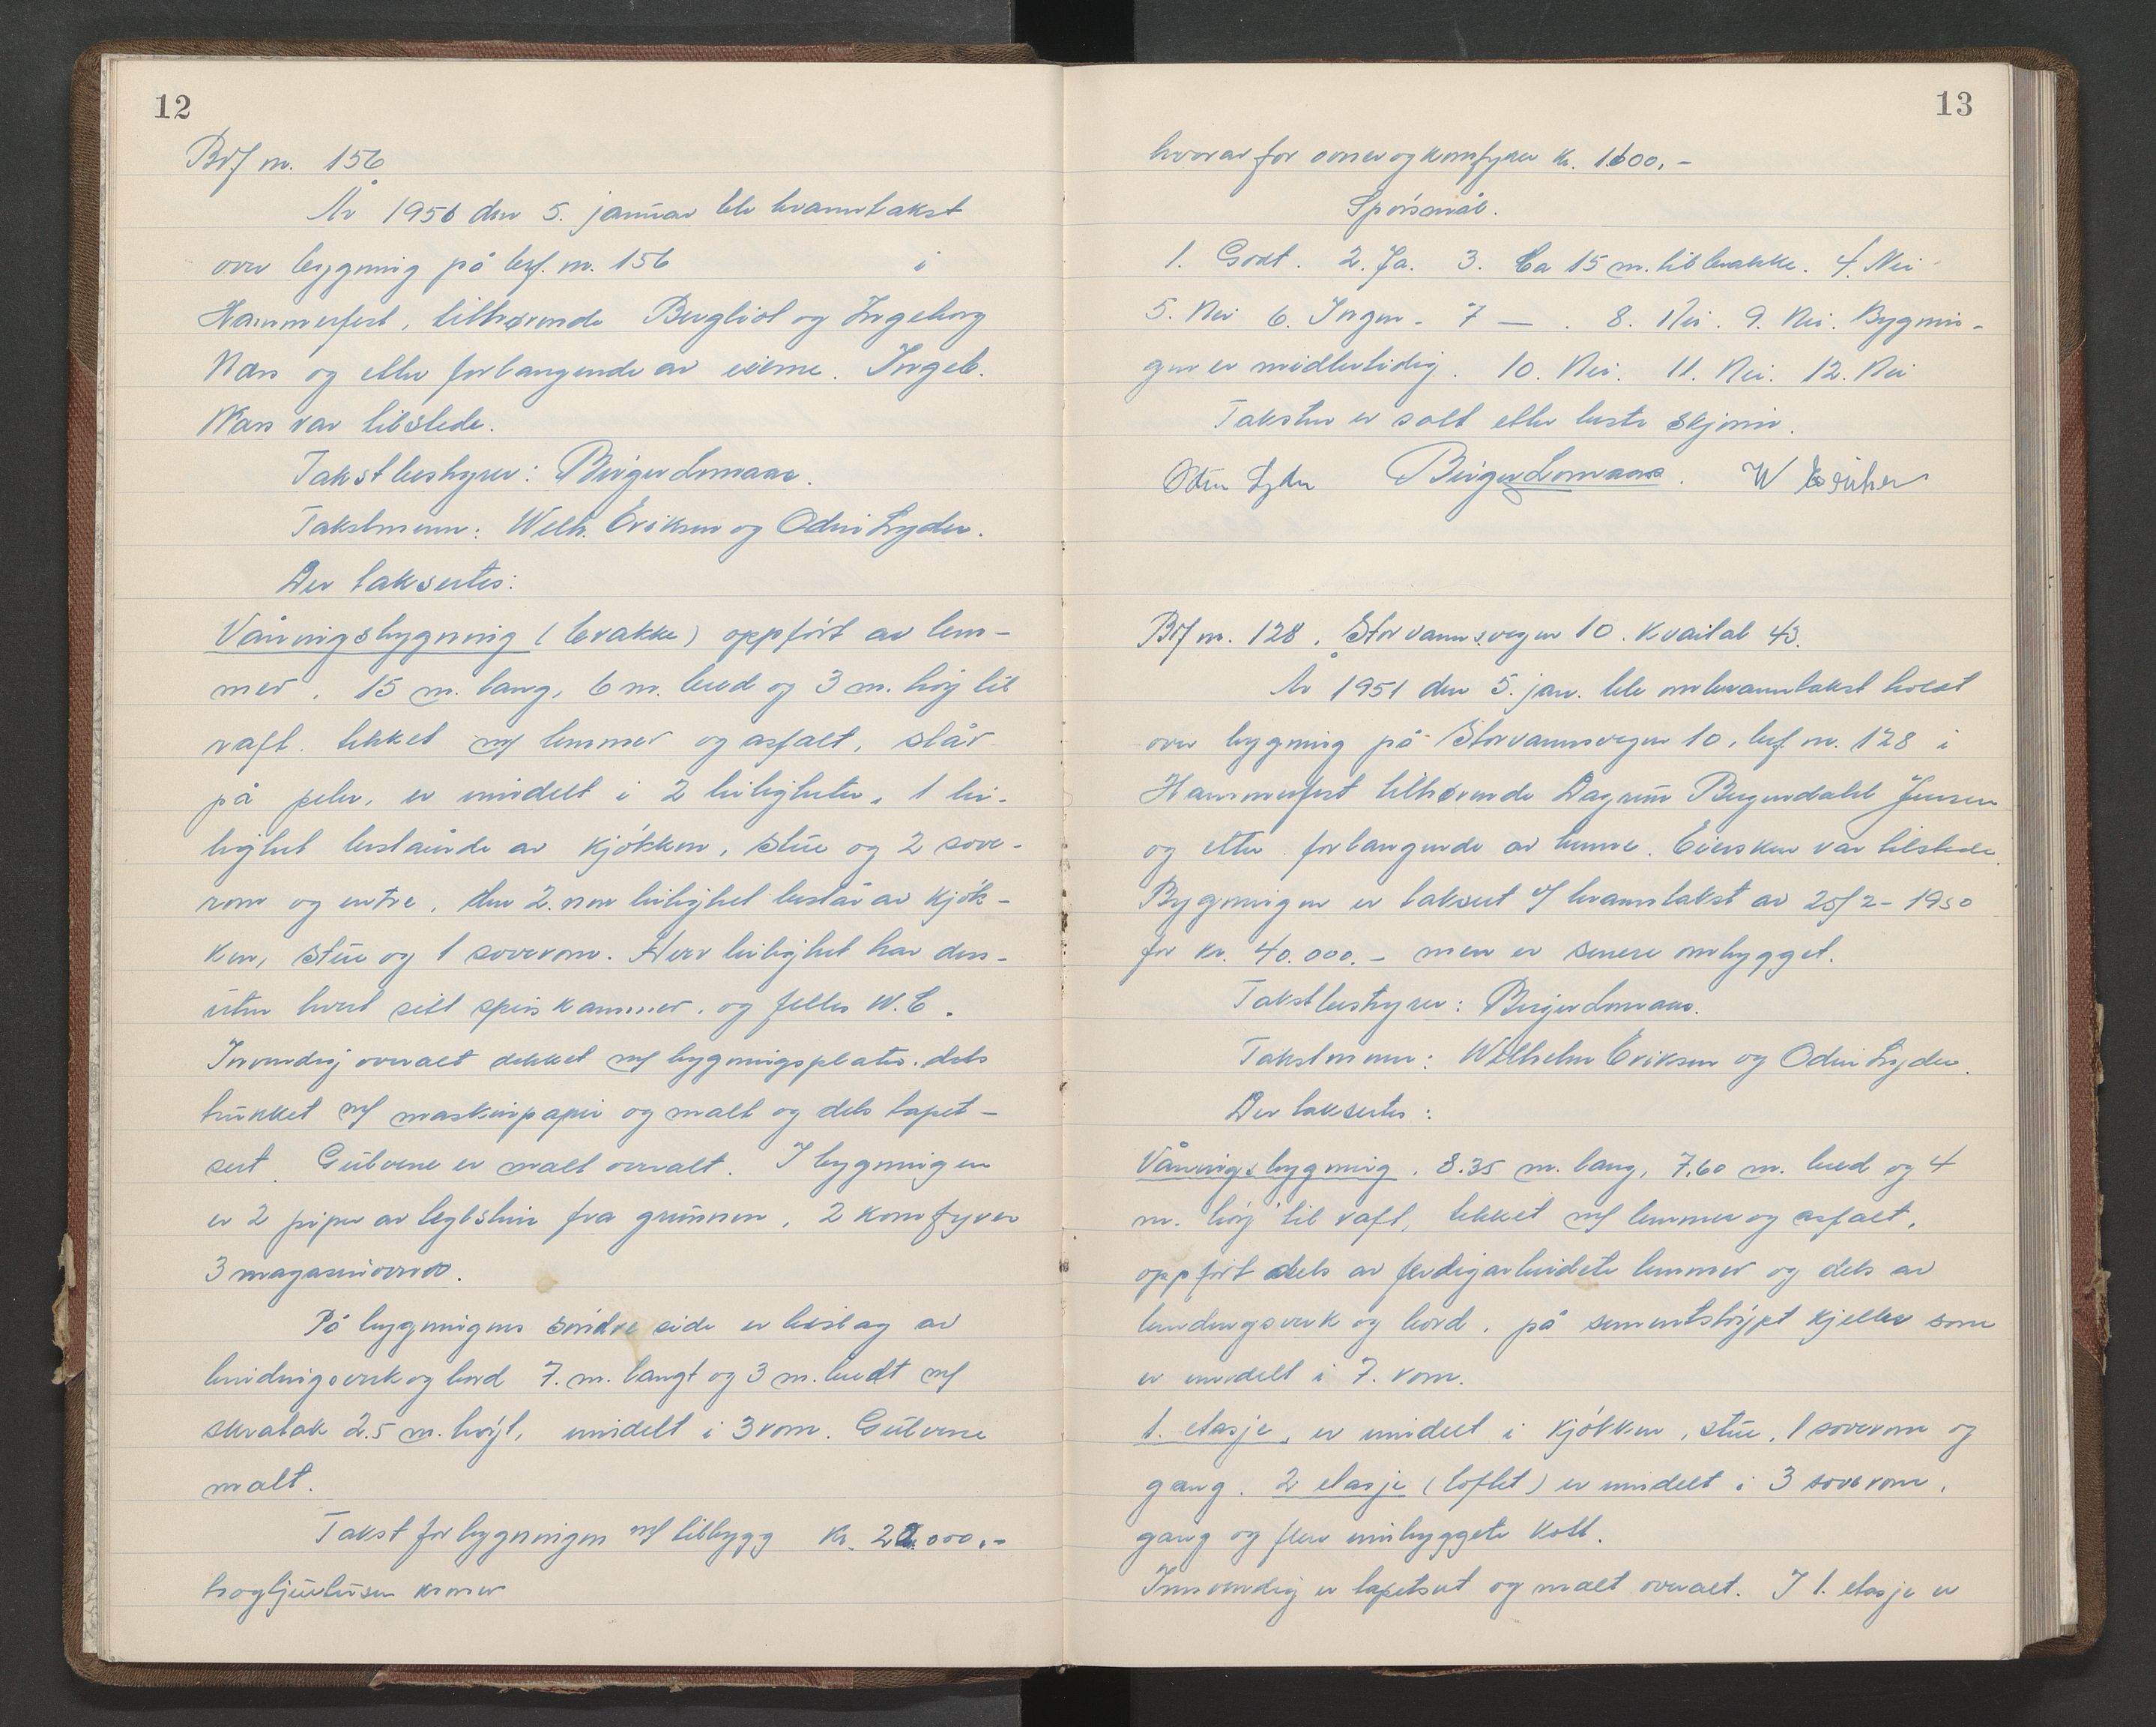 12
Brf nr. 156
År 1951 den 5. januar ble branntakst
over bygning på brf. nr. 156 i
Hammerfest, tilhørende Bergliot og Ingeborg
Næss og etter forlangende av eierne. Ingeb.
Næss var tilstede.
Takstbestyrer: Birger Lomaas.
Takstmenn: Wilh. Eriksen og Odin Lyder.
Der taksertes:
Våningsbygning (brakke) oppført av lem-
mer. 15 m. lang, 6 m. bred og 3 m. høy til
raft. tekket m/ lemmer og asfalt, står
på peler, er inndelt i 2 leiligheter. 1 lei-
lighet bestående av kjøkken, stue og 2 sove-
rom og entre, den 2. nen leilighet består av kjøk-
ken, stue og 1 soverom. Hver leilighet har des-
uten hvert sitt spiskammer, og felles W.C.
Innvendig overalt dekket m/ bygningsplater. dels
trukket m/ maskinpapir og malt og dels tapet-
sert. Gulvene er malt overalt. I bygningen
er 2 piper av teglstein fra grunnen, 2 komfyrer
3 magasinovner.
På bygningens søndre side er bislag av
bindingsverk og bord 7. m. langt og 3 m. bredt m/
skratak 2.5 m. høyt, inndelt i 3 rom. Gulvene
malt.
Takst for bygningen m/ tilbygg kr. 22.000.-
toogtjuetusen kroner
13
hvorav for ovner og komfyrer kr. 1600,-
Spørsmål.
1. Godt. 2. Ja. 3. Ca 15 m. til brakke. 4. Nei
5. Nei 6. Ingen. 7 — . 8. Nei. 9. Nei. Bygnin-
gen er midlertidig. 10. Nei. 11. Nei. 12. Nei
Taksten er satt etter beste skjønn.
Odin Lyder Birger Lomaas. W Eriksen
Brf nr. 128. Storvannsvegen 10. Kvartal 43.
År 1951 den 5. jan. ble ombranntakst holdt
over bygning på Storvannsvegen 10, brf. nr. 128 i
Hammerfest tilhørende Dagrun Bergendahl Jensen
og etter forlangende av henne. Eiersken var tilstede.
Bygningen er taksert v/ branntakst av 25/2-1950
for kr. 40.000.- men er senere ombygget.
Takstbestyrer: Birger Lomaas.
Takstmenn: Wilhelm Eriksen og Odin Lyder.
Der taksertes:
Våningsbygning. 8.35 m. lang, 7,60 m. bred og 4
m. høy til raft, tekket m/ lemmer og asfalt,
oppført dels av ferdigarbeidete lemmer og dels av
bindingsverk og bord. på sementstøypt kjeller som
er inndelt i 7. rom.
1. etasje, er inndelt i kjøkken, stue, 1 soverom og
gang. 2. etasje (loftet) er inndelt i 3 soverom,
gang og flere innbyggete kott.
Innvendig er tapetsert og malt overalt. I 1. etasje er